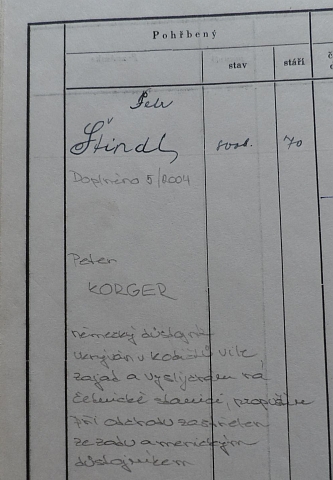 Pohřbený
stav
stáří
Petr
Štindl
svob.
70
Doplněno 5/2004
Peter
KORGER
německý důstojník
ukrýván v
zajat a vyslýchán na
četnické stanici, propuštěn
při odchodu zastřelen
zezadu americkým
důstojníkem